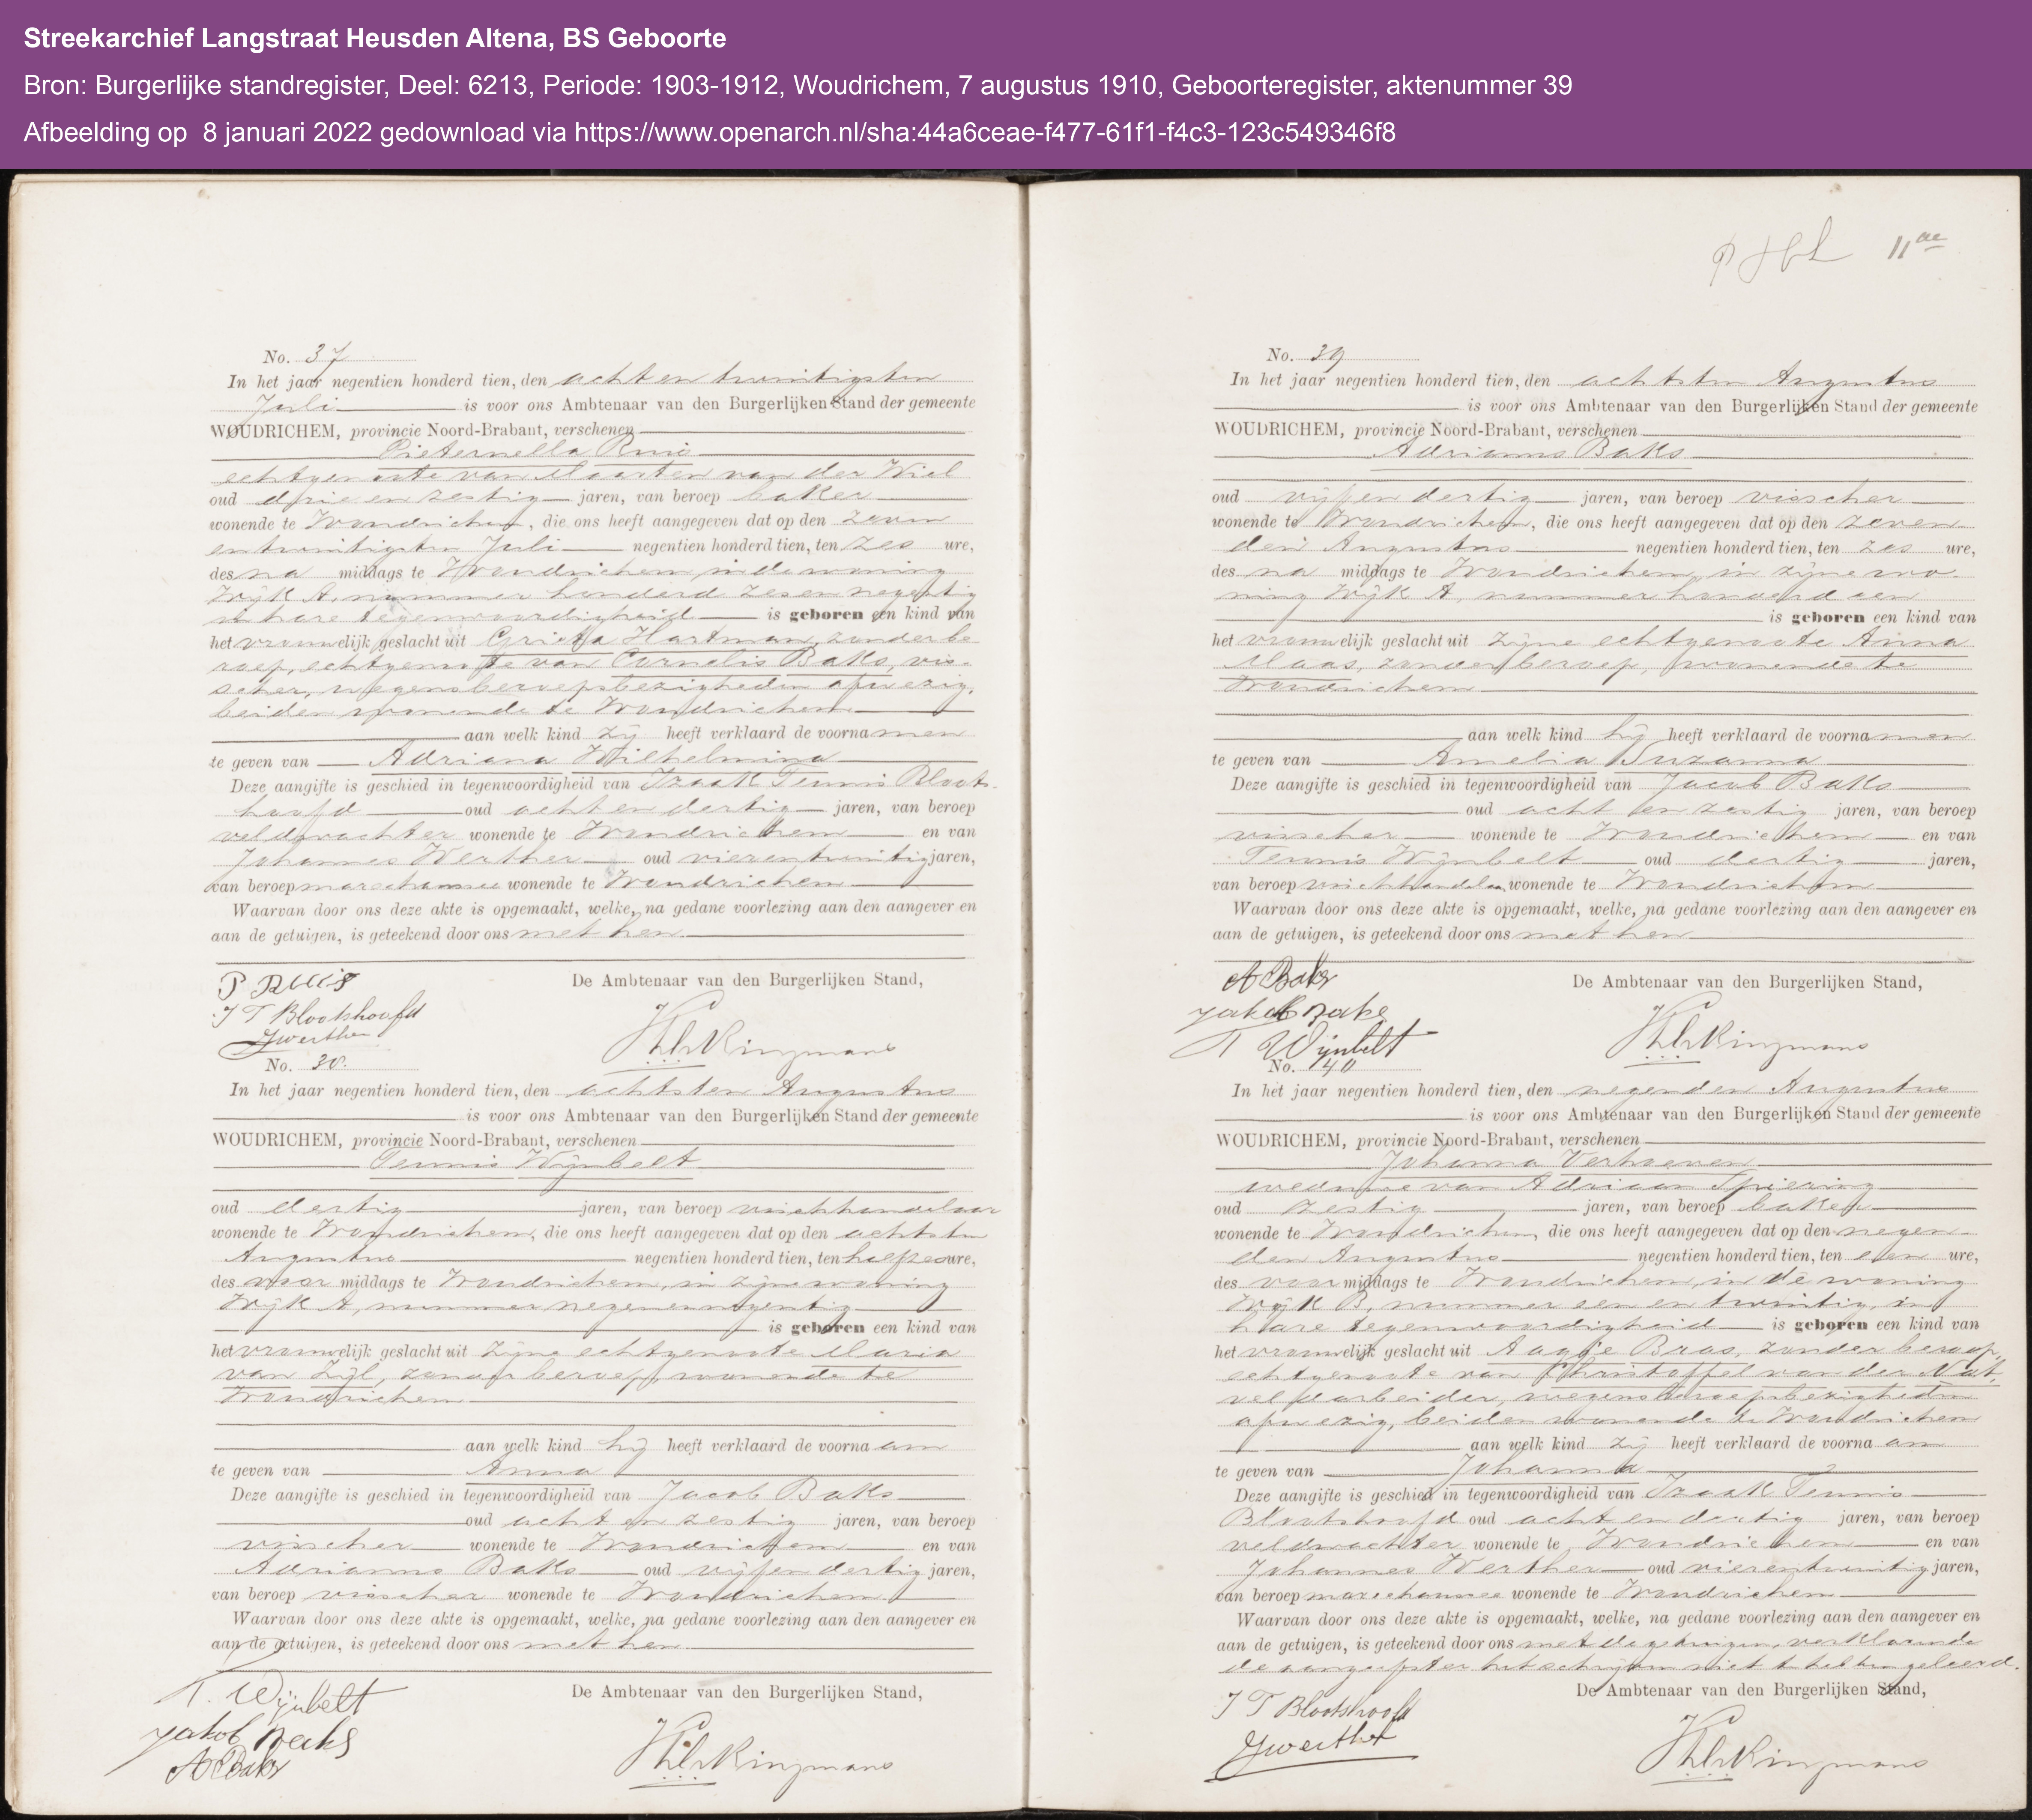 Streekarchief Langstraat Heusden Altena, BS Geboorte
Bron: Burgerlijke standregister, Deel: 6213, Periode: 1903-1912, Woudrichem, 7 augustus 1910, Geboorteregister, aktenummer 39
Afbeelding op 8 januari 2022 gedownload via https://www.openarch.nl/sha:44a6ceae-f477-61f1-f4c3-123c549346f8
No. 37
In het jaar negentien honderd tien, den acht en twintigsten
Juli is voor ons Ambtenaar van den Burgerlijken Stand der gemeente
WOUDRICHEM, provincie Noord-Brabant, verschenen
Pieternella Ruis
echtgenoote van Maarten van der Wiel
oud drie en zestig jaren, van beroep baker
wonende te Woudrichem, die ons heeft aangegeven dat op den zeven
en twintigsten Juli negentien honderd tien, ten zes ure,
des na middags te Woudrichem in de woning
Wijk A, nummer honderd zes en negentig
in hare tegenwoordigheid is geboren een kind van
het vrouwelijk geslacht uit Grietje Hartman, zonder be
roep, echtgenoote van Cornelis Baks, vis-
scher, wegens beroepsbezigheden afwezig,
beiden wonende te Woudrichem
aan welk kind zij heeft verklaard de voornamen
te geven van Adriana Wilhelmina
Deze aangifte is geschied in tegenwoordigheid van Izaak Teunis Bloots-
hoofd oud acht en dertig jaren, van beroep
veldwachter wonende te Woudrichem en van
Johannes Werther oud vier en twintig jaren,
van beroep marechaussee wonende te Woudrichem
Waarvan door ons deze akte is opgemaakt, welke, na gedane voorlezing aan den aangever en
aan de getuigen, is geteekend door ons met hen.
De Ambtenaar van den Burgerlijken Stand,
P Ruis
J T Blootshoofd
JWerther
No. 38.
In het jaar negentien honderd tien, den achtsten Augustus
is voor ons Ambtenaar van den Burgerlijken Stand der gemeente
WOUDRICHEM, provincie Noord-Brabant, verschenen
Teunis Wijnbelt
oud dertig jaren, van beroep vischhandelaar
wonende te Woudrichem, die ons heeft aangegeven dat op den achtsten
Augustus negentien honderd tien, ten half zes ure,
des voor middags te Woudrichem, in zijne woning
Wijk A, nummer negen en negentig
is geboren een kind van
het vrouwelijk geslacht uit zijne echtgenoote Maria
van Zijl, zonder beroep, wonende te
Woudrichem
aan welk kind hij heeft verklaard de voornaam
te geven van Anna
Deze aangifte is geschied in tegenwoordigheid van Jacob Baks
oud acht en zestig jaren, van beroep
visscher wonende te Woudrichem en van
Adrianus Baks oud vijf en dertig jaren,
van beroep visscher wonende te Woudrichem
Waarvan door ons deze akte is opgemaakt, welke, na gedane voorlezing aan den aangever en
aan de getuigen, is geteekend door ons met hen.
De Ambtenaar van den Burgerlijken Stand,
T. Wijnbelt
Jakob Baks
A Baks
11de
No. 39
In het jaar negentien honderd tien, den achtsten Augustus
is voor ons Ambtenaar van den Burgerlijken Stand der gemeente
WOUDRICHEM, provincie Noord-Brabant, verschenen
Adrianus Baks
oud vijf en dertig jaren, van beroep visscher
wonende te Woudrichem, die ons heeft aangegeven dat op den zeven
den Augustus negentien honderd tien, ten zes ure,
des na middags te Woudrichem, in zijne wo-
ning Wijk A, nummer honderd een
is geboren een kind van
het vrouwelijk geslacht uit zijne echtgenoote Anna
Maas, zonder beroep, wonende te
Woudrichem
aan welk kind hij heeft verklaard de voornamen
te geven van Amelia Suzanna
Deze aangifte is geschied in tegenwoordigheid van Jacob Baks
oud acht en zestig jaren, van beroep
visscher wonende te Woudrichem en van
Teunis Wijnbelt oud dertig jaren,
van beroep vischhandelaar wonende te Woudrichem
Waarvan door ons deze akte is opgemaakt, welke, na gedane voorlezing aan den aangever en
aan de getuigen, is geteekend door ons met hen
De Ambtenaar van den Burgerlijken Stand,
A Baks
Jakob Baks
T Wijnbelt
No. 40
In het jaar negentien honderd tien, den negenden Augustus
is voor ons Ambtenaar van den Burgerlijken Stand der gemeente
WOUDRICHEM, provincie Noord-Brabant, verschenen
Johanna Verhoeven
weduwe van Adriaan Spiering
oud zestig jaren, van beroep baker
wonende te Woudrichem, die ons heeft aangegeven dat op den negen
den Augustus negentien honderd tien, ten een ure,
des voor middags te Woudrichem, in de woning
Wijk B, nummer een en twintig, in
hare tegenwoordigheid is geboren een kind van
het vrouwelijk geslacht uit Aagje Bras, zonder beroep,
echtgenoote van Christoffel van der Nat,
veldarbeider, wegens beroepsbezigheden
afwezig, beiden wonende te Woudrichem
aan welk kind zij heeft verklaard de voornaam
te geven van Johanna
Deze aangifte is geschied in tegenwoordigheid van Izaak Teunis
Blootshoofd oud acht en dertig jaren, van beroep
veldwachter wonende te Woudrichem en van
Johannes Werther oud vier en twintig jaren,
van beroep marechaussee wonende te Woudrichem
Waarvan door ons deze akte is opgemaakt, welke, na gedane voorlezing aan den aangever en
aan de getuigen, is geteekend door ons met de getuigen, verklarende
de aangeefster het schrijven niet te hebben geleerd.
De Ambtenaar van den Burgerlijken Stand,
J T Blootshoofd
JWerther